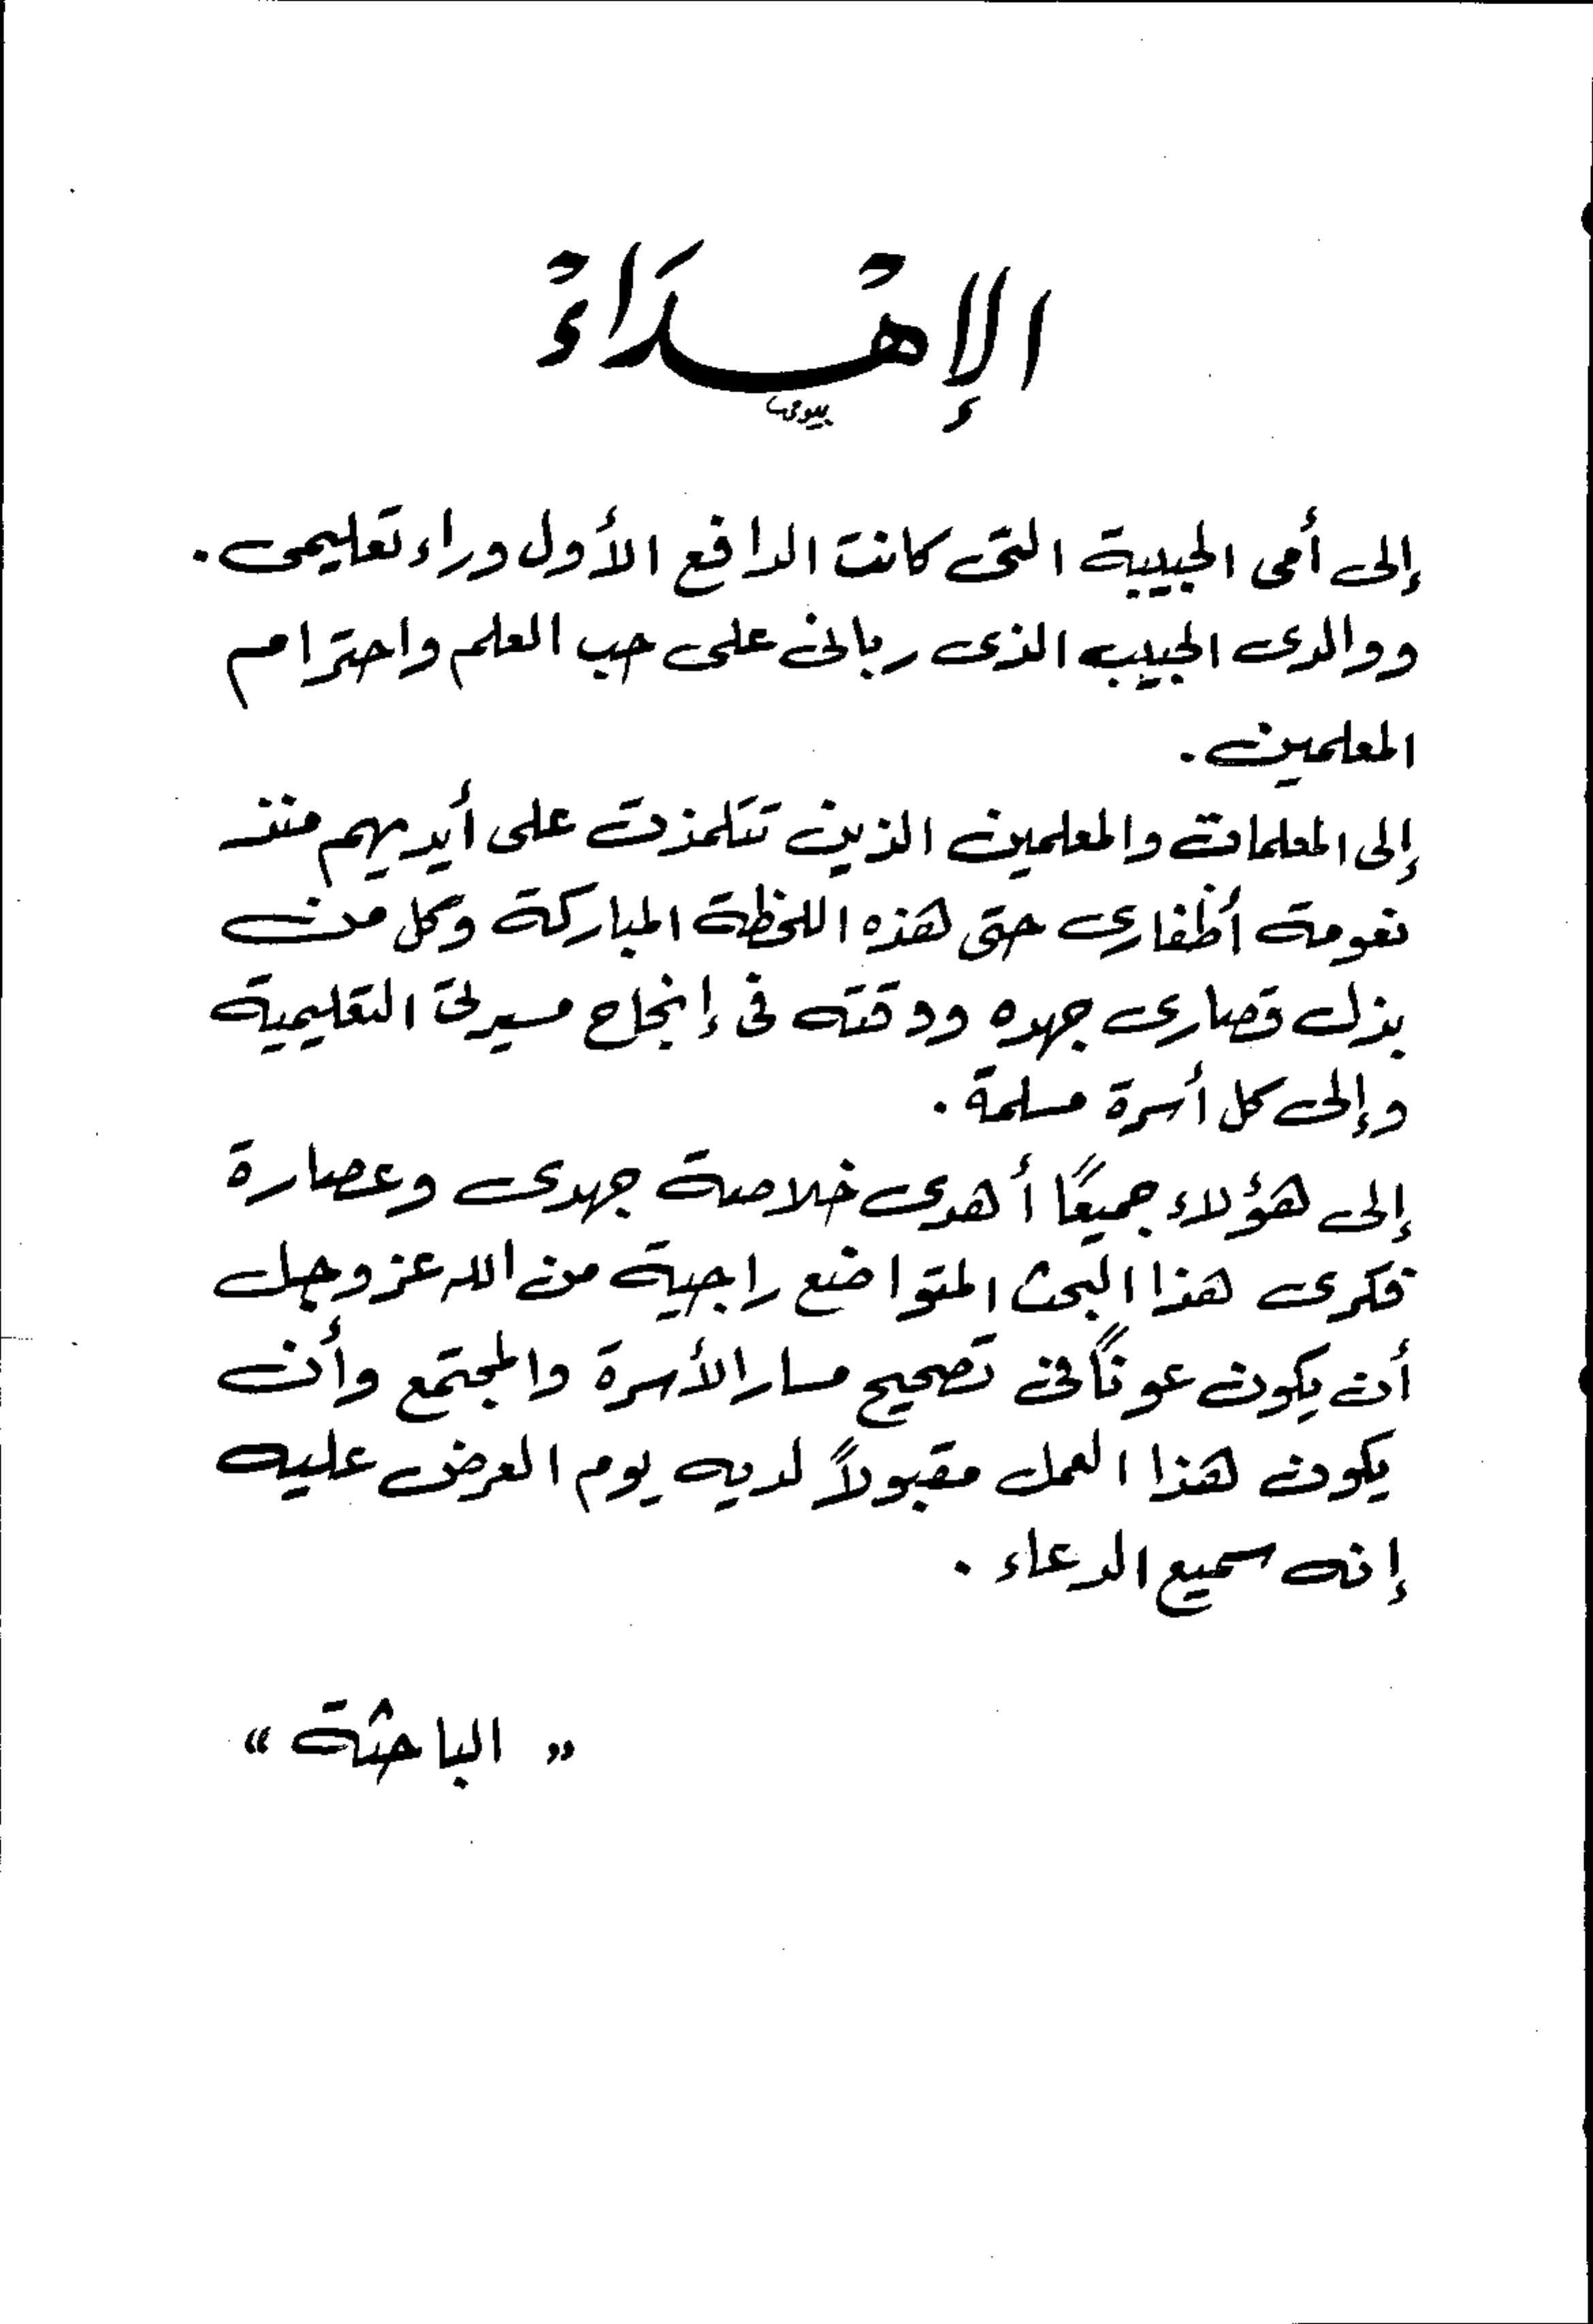 الإهْدَاءْ
إلى أمى الحبيبة التى كانت الدافع الأول وراء تعليمى .
ووالدى الحبيب الذى ربانى على حب العلم واحترام
المعلمين .
إلى المعلمات والمعلمين الذين تتلمذت على أيديهم منذ
نعومة أظفارى حتى هذه اللحظة المباركة وكل من
بذل قصارى جهده ووقته فى إنجاح مسيرتى التعليمية
وإلى كل أسرة مسلمة .
إلى هؤلاء جميعًا أهدى خلاصة جهدى وعصارة
فكرى هذا البحث المتواضع راجية من الله عز وجل
أن يكون عونًا فى تصحيح مسار الأسرة والمجتمع وأن
يكون هذا العمل مقبولاً لديه يوم العرض عليه
إنه سميع الدعاء .
" الباحثة "